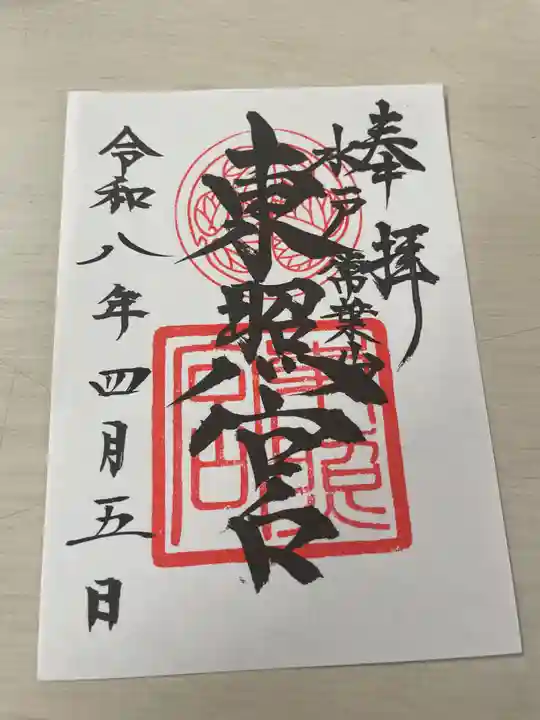 奉拝
水戸常葉山
東照宮
令和八年四月五日